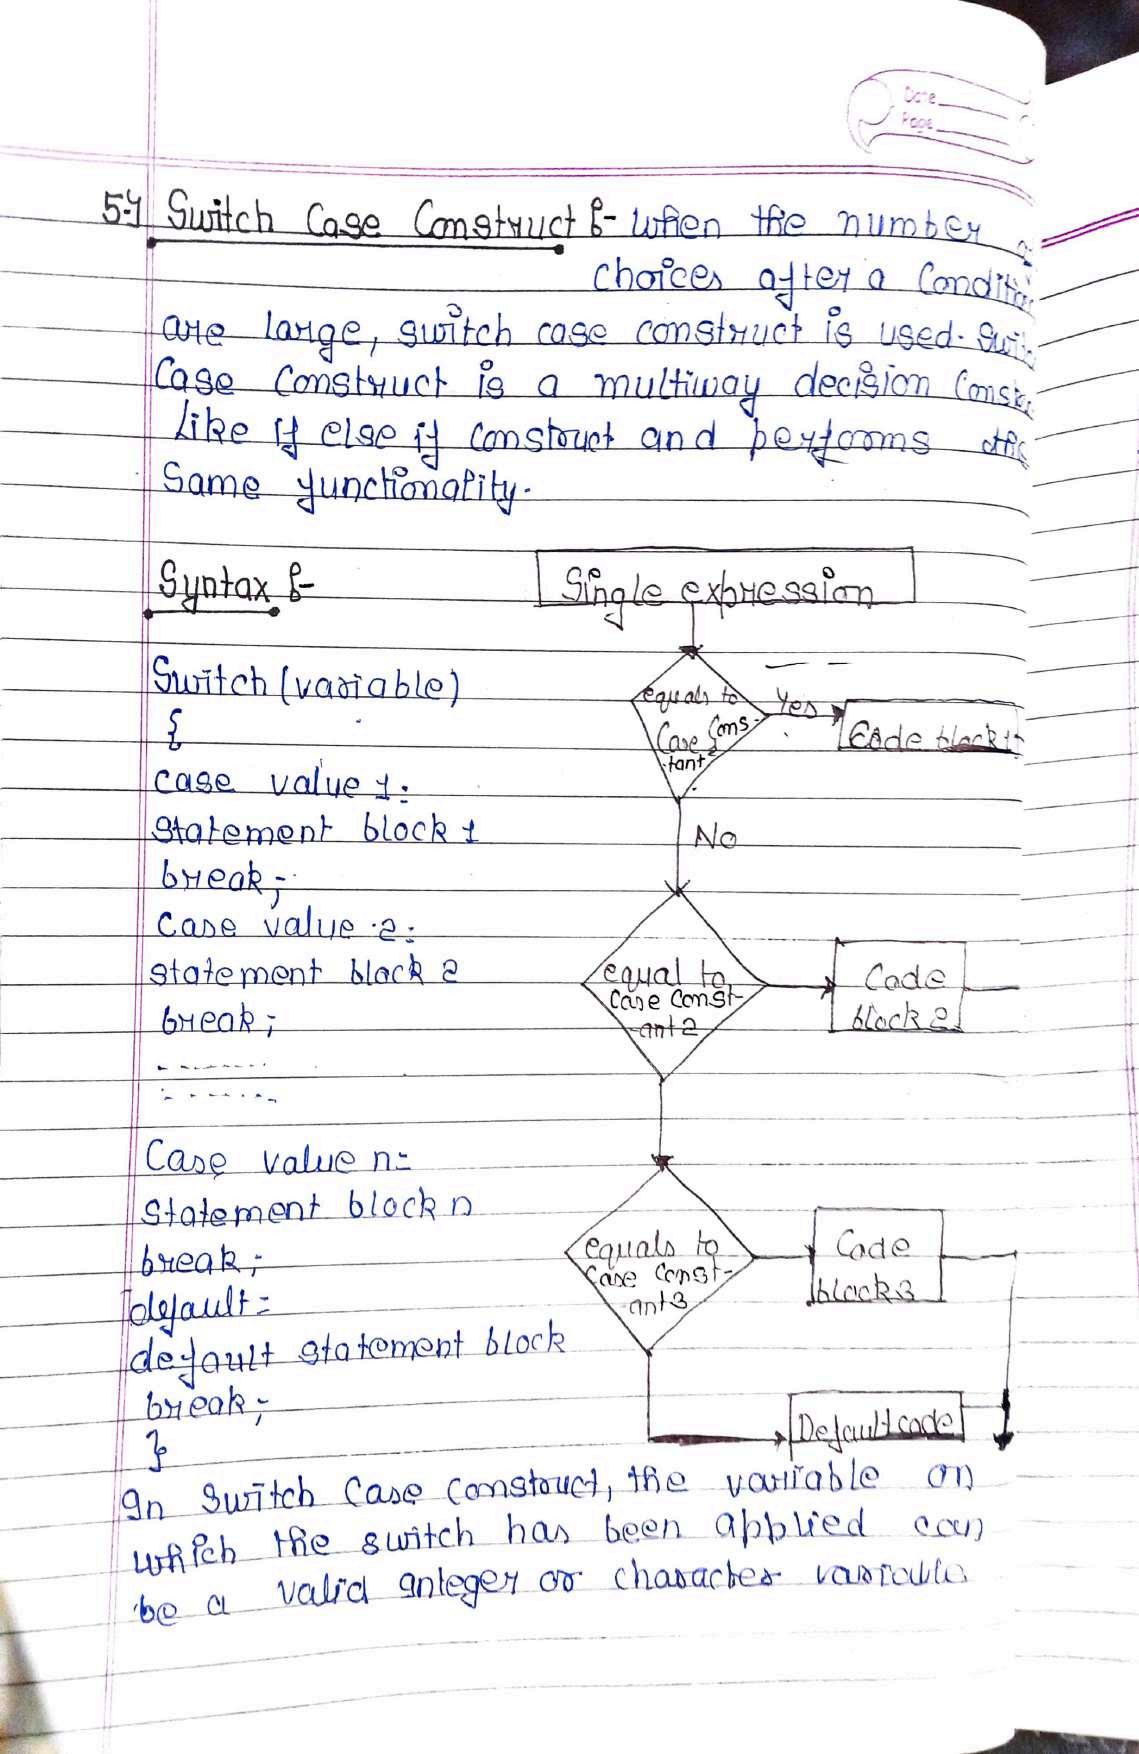 Date
Page
5.4 Switch Case Construct :- When the number
choices after a Conditi
are large, switch case construct is used. Swit
Case Construct is a multiway decision Const
Like if else if construct and performs the
Same functionality.
Syntax :-
Single expression
Switch (variable)
{
case value 1:
statement block 1
break;
Case value 2:
statement block 2
break;
--------
--------
Case value n:
Statement block n
break;
default:
default statement block
break;
}
equals to
Case Cons-
tant
Yes
Code block 1
No
equal to
Case Const-
ant 2
Code
block 2
equals to
Case Const-
ant 3
Code
block 3
Default code
In Switch Case Construct, the variable on
which the switch has been applied can
be a valid integer or character variable